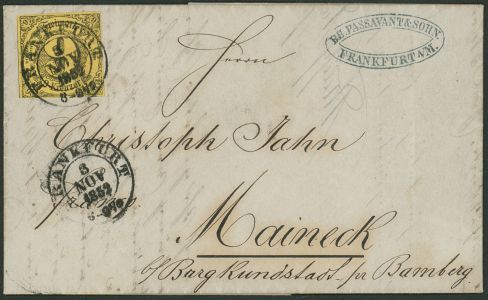 BD. PASSAVANT & SOHN.
FRANKFURT A/M.
FRANKFURT
3
NOV
1852
Herrn
Christoph Jahn
FRANKFURT
3
NOV
1852
Maineck
b/ Burgkundstadt pr Bamberg